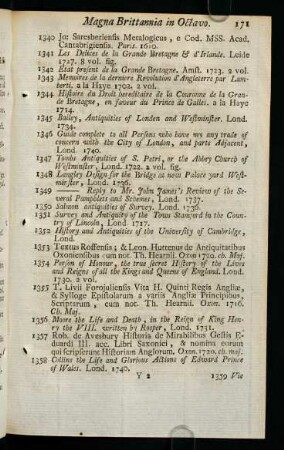 Magna Brittannia in Octavo. 171
1340 Jo: Saresberiensis Metalogicus, e Cod. MSS. Acad.
Cantabrigiensis. Paris. 1610.
1341 Les Delices de la Grande Bretagne & d'Irlande. Leide
1717. 8 vol. fig.
1342 Etat present de la Grande Bretagne. Amst. 1723. 2 vol.
1343 Memoires de la derniere Revolution d'Angleterre par Lam-
berti. a la Haye 1702. 2 vol.
1344 Histoire du Droit hereditaire de la Couronne de la Gran-
de Bretagne, en faveur du Prince de Galles. a la Haye
1714.
1345 Bailey, Antiquities of London and Westminster. Lond.
1734.
1346 Guide complete to all Persons who have any any trade of
concern with the City of London, and parts Adjacent,
Lond. 1740.
1347 Tombs Antiquities of S. Petri, or the Abbey Church of
Westminster, Lond. 1722. 2 vol. fig.
1348 Langley Design for the Bridge at new Palace yard West-
minster, Lond. 1736.
1349 Reply to Mr. John James's Review of the Se-
veral Pamphlets and Schemes, Lond. 1737.
1350 Salmon antiquities of Surrey. Lond. 1736.
1351 Survey and Antiquity of the Town Stamford in the Coun-
try of Lincoln, Lond 1717.
1352 History and Antiquities of the University of Cambridge,
Lond.
1353 Textus Roffensis; & Leon. Huttenus de Antiquitatibus
Oxoniensibus cum not. Th. Hearnii. Oxon 1720. ch. Maj.
1354 Person of Honour, the true secret History of the Lives
and Reigns of all the Kings and Queens of England. Lond.
1730. 2 vol.
1355 T. Livii Forojuliensis Vita H. Quinti Regis Angliæ,
& Sylloge Epistolarum a variis Angliæ Principibus,
Scriptorum, cum not. Th. Hearnii. Oxon. 1716.
Ch. Maj.
1356 Moore the Life and Death, in the Reign of King Hen-
ry the VIII. written by Rooper, Lond. 1731.
1357 Rob. de Avesbury Historia de Mirabilibus Gestis E-
duardi III. acc. Libri Saxonici, & nomina eorum
qui scripserunt Historiam Anglorum. Oxon. 1720. ch. maj.
1358 Collins the Life and Glorious Actions of Edward Prince
of Wales. Lond. 1740.
Y 2 1359 Vie